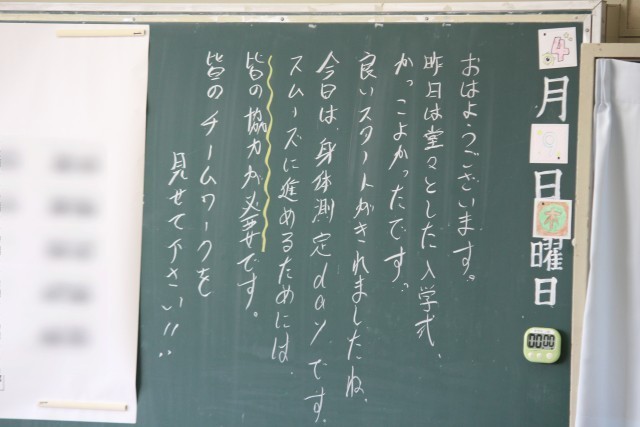 4月9日木曜日
おはようございます。
昨日は堂々とした入学式、
かっこよかったです。
良いスタートがきれましたね。
今日は、身体測定dayです。
スムーズに進めるためには、
皆の協力が必要です。
皆のチームワークを
見せて下さい!!
00:00